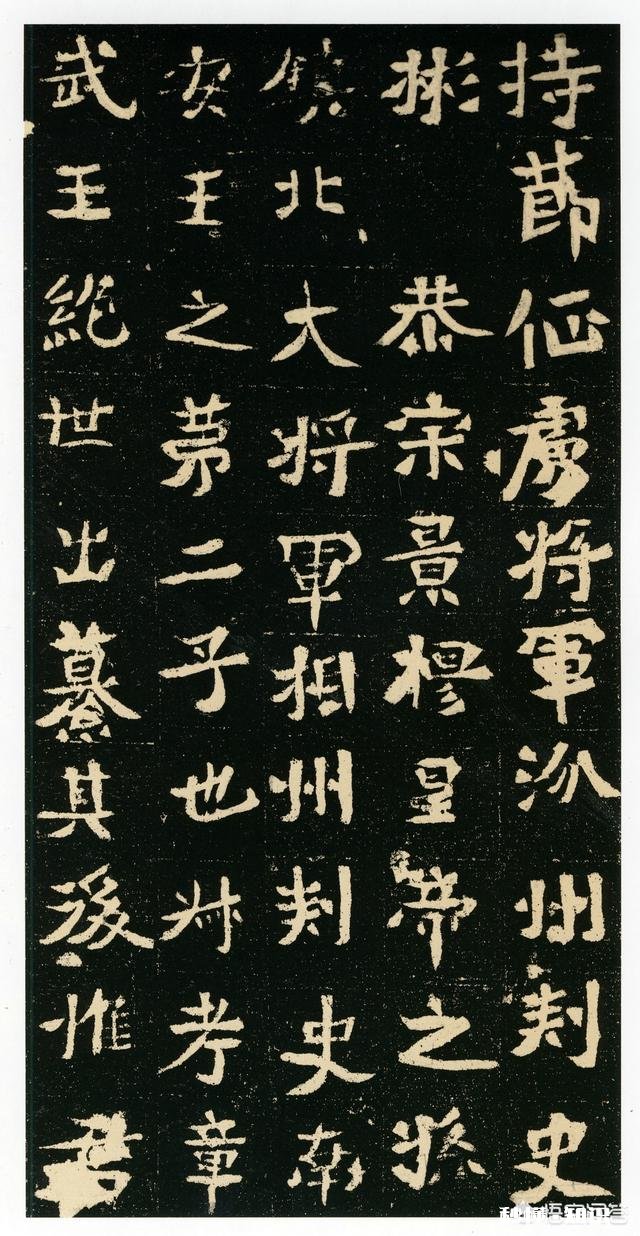 持莭征虜将軍汾州刺史
彬 恭宗景穆皇帝之孫
鎮北大将軍相州刺史南
安王之苐二子也叔考章
武王絶世出纂其後惟君